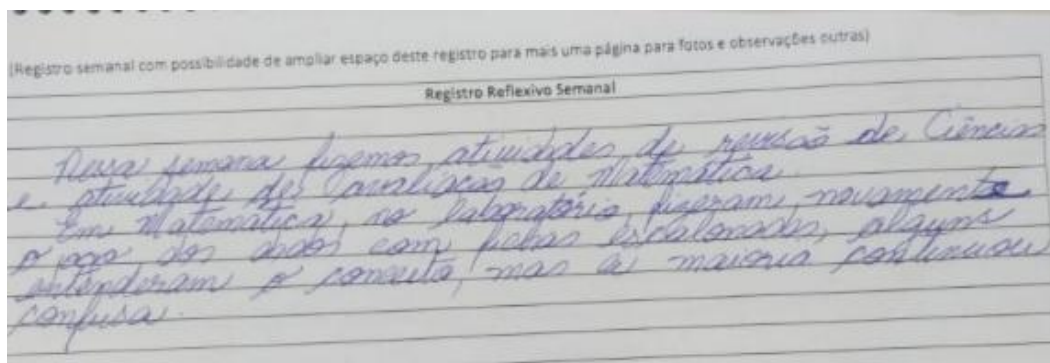 (Registro semanal com possibilidade de ampliar espaço deste registro para mais uma página para fotos e observações outras)
Registro Reflexivo Semanal
Nessa semana fizemos atividades de revisão de Ciências
e atividade de avaliação de Matemática.
Em Matemática, no laboratório, fizeram novamente
o jogo dos dados com fichas escalonadas, alguns
entenderam o conceito, mas a maioria continuou
confusa.